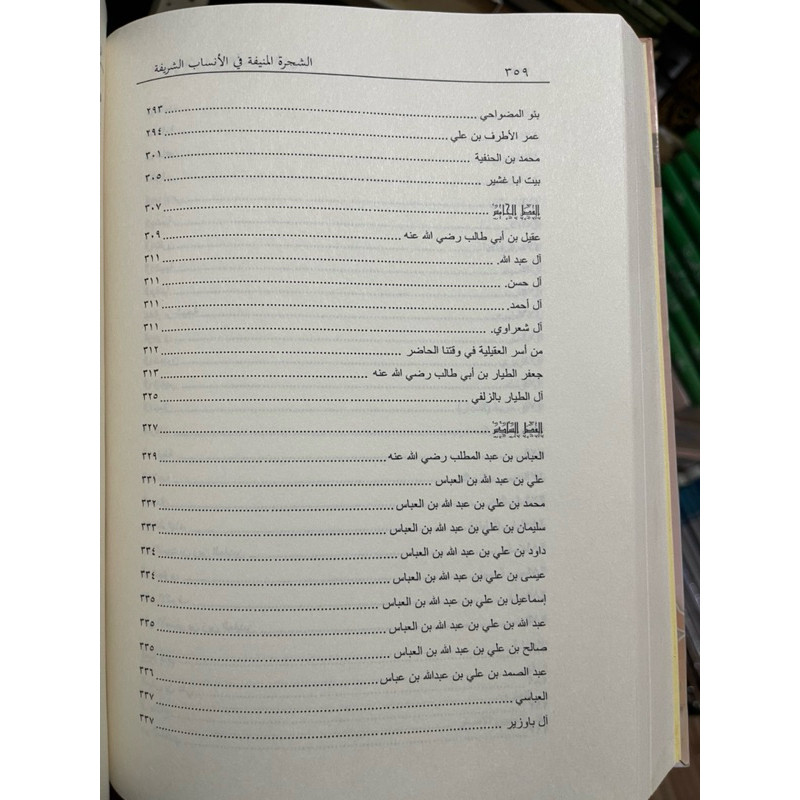 ٣٥٩ الشجرة المنيفة في الأنساب الشريفة
بنو المضواحي ................ ٢٩٣
عمر الأطرف بن علي ................ ٢٩٤
محمد بن الحنفية ................ ٣٠١
بيت ابا غشير ................ ٣٠٥
الفصل الخامس ................ ٣٠٧
عقيل بن أبي طالب رضي الله عنه ................ ٣٠٩
آل عبد الله. ................ ٣١١
آل حسن. ................ ٣١١
آل أحمد. ................ ٣١١
آل شعراوي. ................ ٣١١
من أسر العقيلية في وقتنا الحاضر ................ ٣١٢
جعفر الطيار بن أبي طالب رضي الله عنه ................ ٣١٣
آل الطيار بالزلفي ................ ٣٢٥
الفصل السادس ................ ٣٢٧
العباس بن عبد المطلب رضي الله عنه ................ ٣٢٩
علي بن عبد الله بن العباس ................ ٣٣١
محمد بن علي بن عبد الله بن العباس ................ ٣٣٢
سليمان بن علي بن عبد الله بن العباس ................ ٣٣٣
داود بن علي بن عبد الله بن العباس ................ ٣٣٤
عيسى بن علي بن عبد الله بن العباس ................ ٣٣٤
إسماعيل بن علي بن عبد الله بن العباس ................ ٣٣٥
عبد الله بن علي بن عبد الله بن العباس ................ ٣٣٥
صالح بن علي بن عبد الله بن العباس ................ ٣٣٥
عبد الصمد بن علي بن عبدالله بن عباس ................ ٣٣٦
العباسي ................ ٣٣٧
آل باوزير ................ ٣٣٧